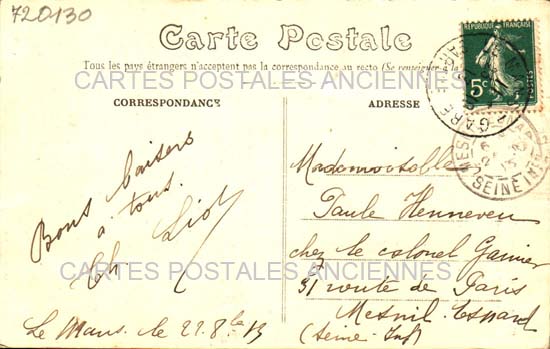 720130
Carte Postale
Tous les pays étrangers n'acceptent pas la correspondance au recto (Se renseigner à la
CARTES POSTALES ANCIENNES
CORRESPONDANCE
ADRESSE
RÉPUBLIQUE FRANÇAISE
5c
POSTES
GARE
SEINE INF
Bons baisers
à tous.
Mademoiselle
Paule Henneveu
chez le colonel Garnier
CARTES POSTALES ANCIENNES
31 route de Paris
Mesnil-Esnard
(Seine Inf)
Le Mans. le 22. 8bre 13